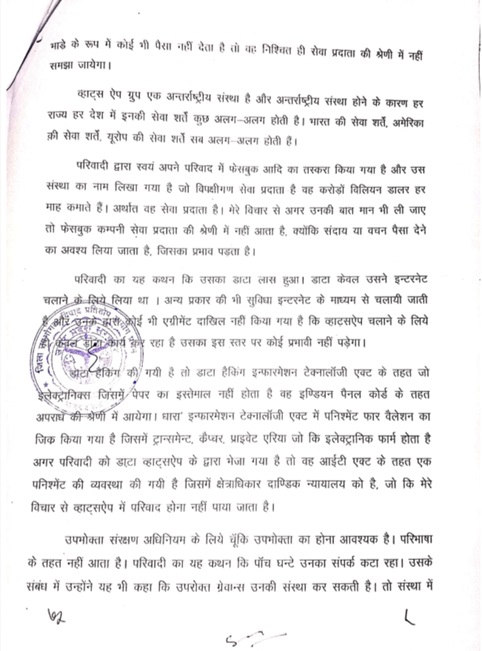 भाडे के रूप में कोई भी पैसा नहीं देता है तो वह निश्चित ही सेवा प्रदाता की श्रेणी में नहीं
समझा जायेगा।
व्हाट्स ऐप ग्रुप एक अन्तर्राष्ट्रीय संस्था है और अन्तर्राष्ट्रीय संस्था होने के कारण हर
राज्य हर देश में इनकी सेवा शर्ते कुछ अलग–अलग होती है। भारत की सेवा शर्ते, अमेरिका
की सेवा शर्ते, यूरोप की सेवा शर्ते सब अलग–अलग होती हैं।
परिवादी द्वारा स्वयं अपने परिवाद में फेसबुक आदि का तस्करा किया गया है और उस
संस्था का नाम लिखा गया है जो विपक्षीगण सेवा प्रदाता है वह करोड़ों विलियन डालर हर
माह कमाते हैं। अर्थात वह सेवा प्रदाता है। मेरे विचार से अगर उनकी बात मान भी ली जाए
तो फेसबुक कम्पनी सेवा प्रदाता की श्रेणी में नहीं आता है, क्योंकि संदाय या वचन पैसा देने
का अवश्य लिया जाता है, जिसका प्रभाव पड़ता है।
परिवादी का यह कथन कि उसका डाटा लास हुआ। डाटा केवल उसने इन्टरनेट
चलाने के लिये लिया था । अन्य प्रकार की भी सुविधा इन्टरनेट के माध्यम से चलायी जाती
है और उनके द्वारा कोई भी एग्रीमेंट दाखिल नहीं किया गया है कि व्हाटसऐप चलाने के लिये
ही केवल डाटा कार्य कर रहा है उसका इस स्तर पर कोई प्रभावी नहीं पड़ेगा।
डाटा हैकिंग की गयी है तो डाटा हैकिंग इन्फारमेशन टेक्नालॉजी एक्ट के तहत जो
इलेक्ट्रानिक्स जिसमें पेपर का इस्तेमाल नहीं होता है वह इण्डियन पैनल कोर्ड के तहत
अपराध की श्रेणी में आयेगा। धारा' इन्फारमेशन टेक्नालॉजी एक्ट में पनिश्मेंट फार वैलेशन का
जिक किया गया है जिसमें ट्रान्समेन्ट, कैप्चर, प्राइवेट एरिया जो कि इलेक्ट्रानिक फार्म होता है
अगर परिवादी को डाटा व्हाट्सऐप के द्वारा भेजा गया है तो वह आईटी एक्ट के तहत एक
पनिश्मेंट की व्यवस्था की गयी है जिसमें क्षेत्राधिकार दाण्डिक न्यायालय को है, जो कि मेरे
विचार से व्हाट्सऐप में परिवाद होना नहीं पाया जाता है।
उपभोक्ता संरक्षण अधिनियम के लिये चूँकि उपभोक्ता का होना आवश्यक है। परिभाषा
के तहत नहीं आता है। परिवादी का यह कथन कि पाँच घन्टे उनका संपर्क कटा रहा। उसके
संबंध में उन्होंने यह भी कहा कि उपरोक्त ग्रेवान्स उनकी संस्था कर सकती है। तो संस्था में